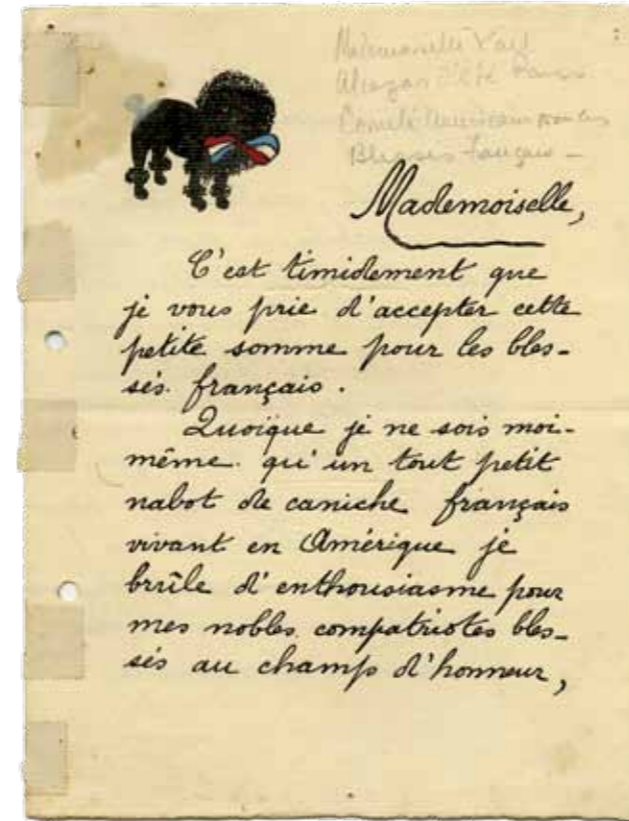 Mademoiselle
Alcazar d'été Paris
Comité Américain pour les
Blessés français –
Mademoiselle,
C'est timidement que
je vous prie d'accepter cette
petite somme pour les bles-
sés français.
Quoique je ne sois moi-
même qu'un tout petit
nabot de caniche français
vivant en Amérique je
brûle d'enthousiasme pour
mes nobles compatriotes bles-
sés au champ d'honneur,